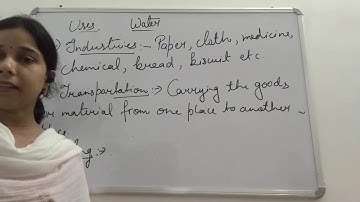 Uses Water
) Industries:- Paper, cloth, medicine,
chemical, bread, biscuit etc.
Transportation:→ Carrying the goods
or material from one place to another ~
ng:→